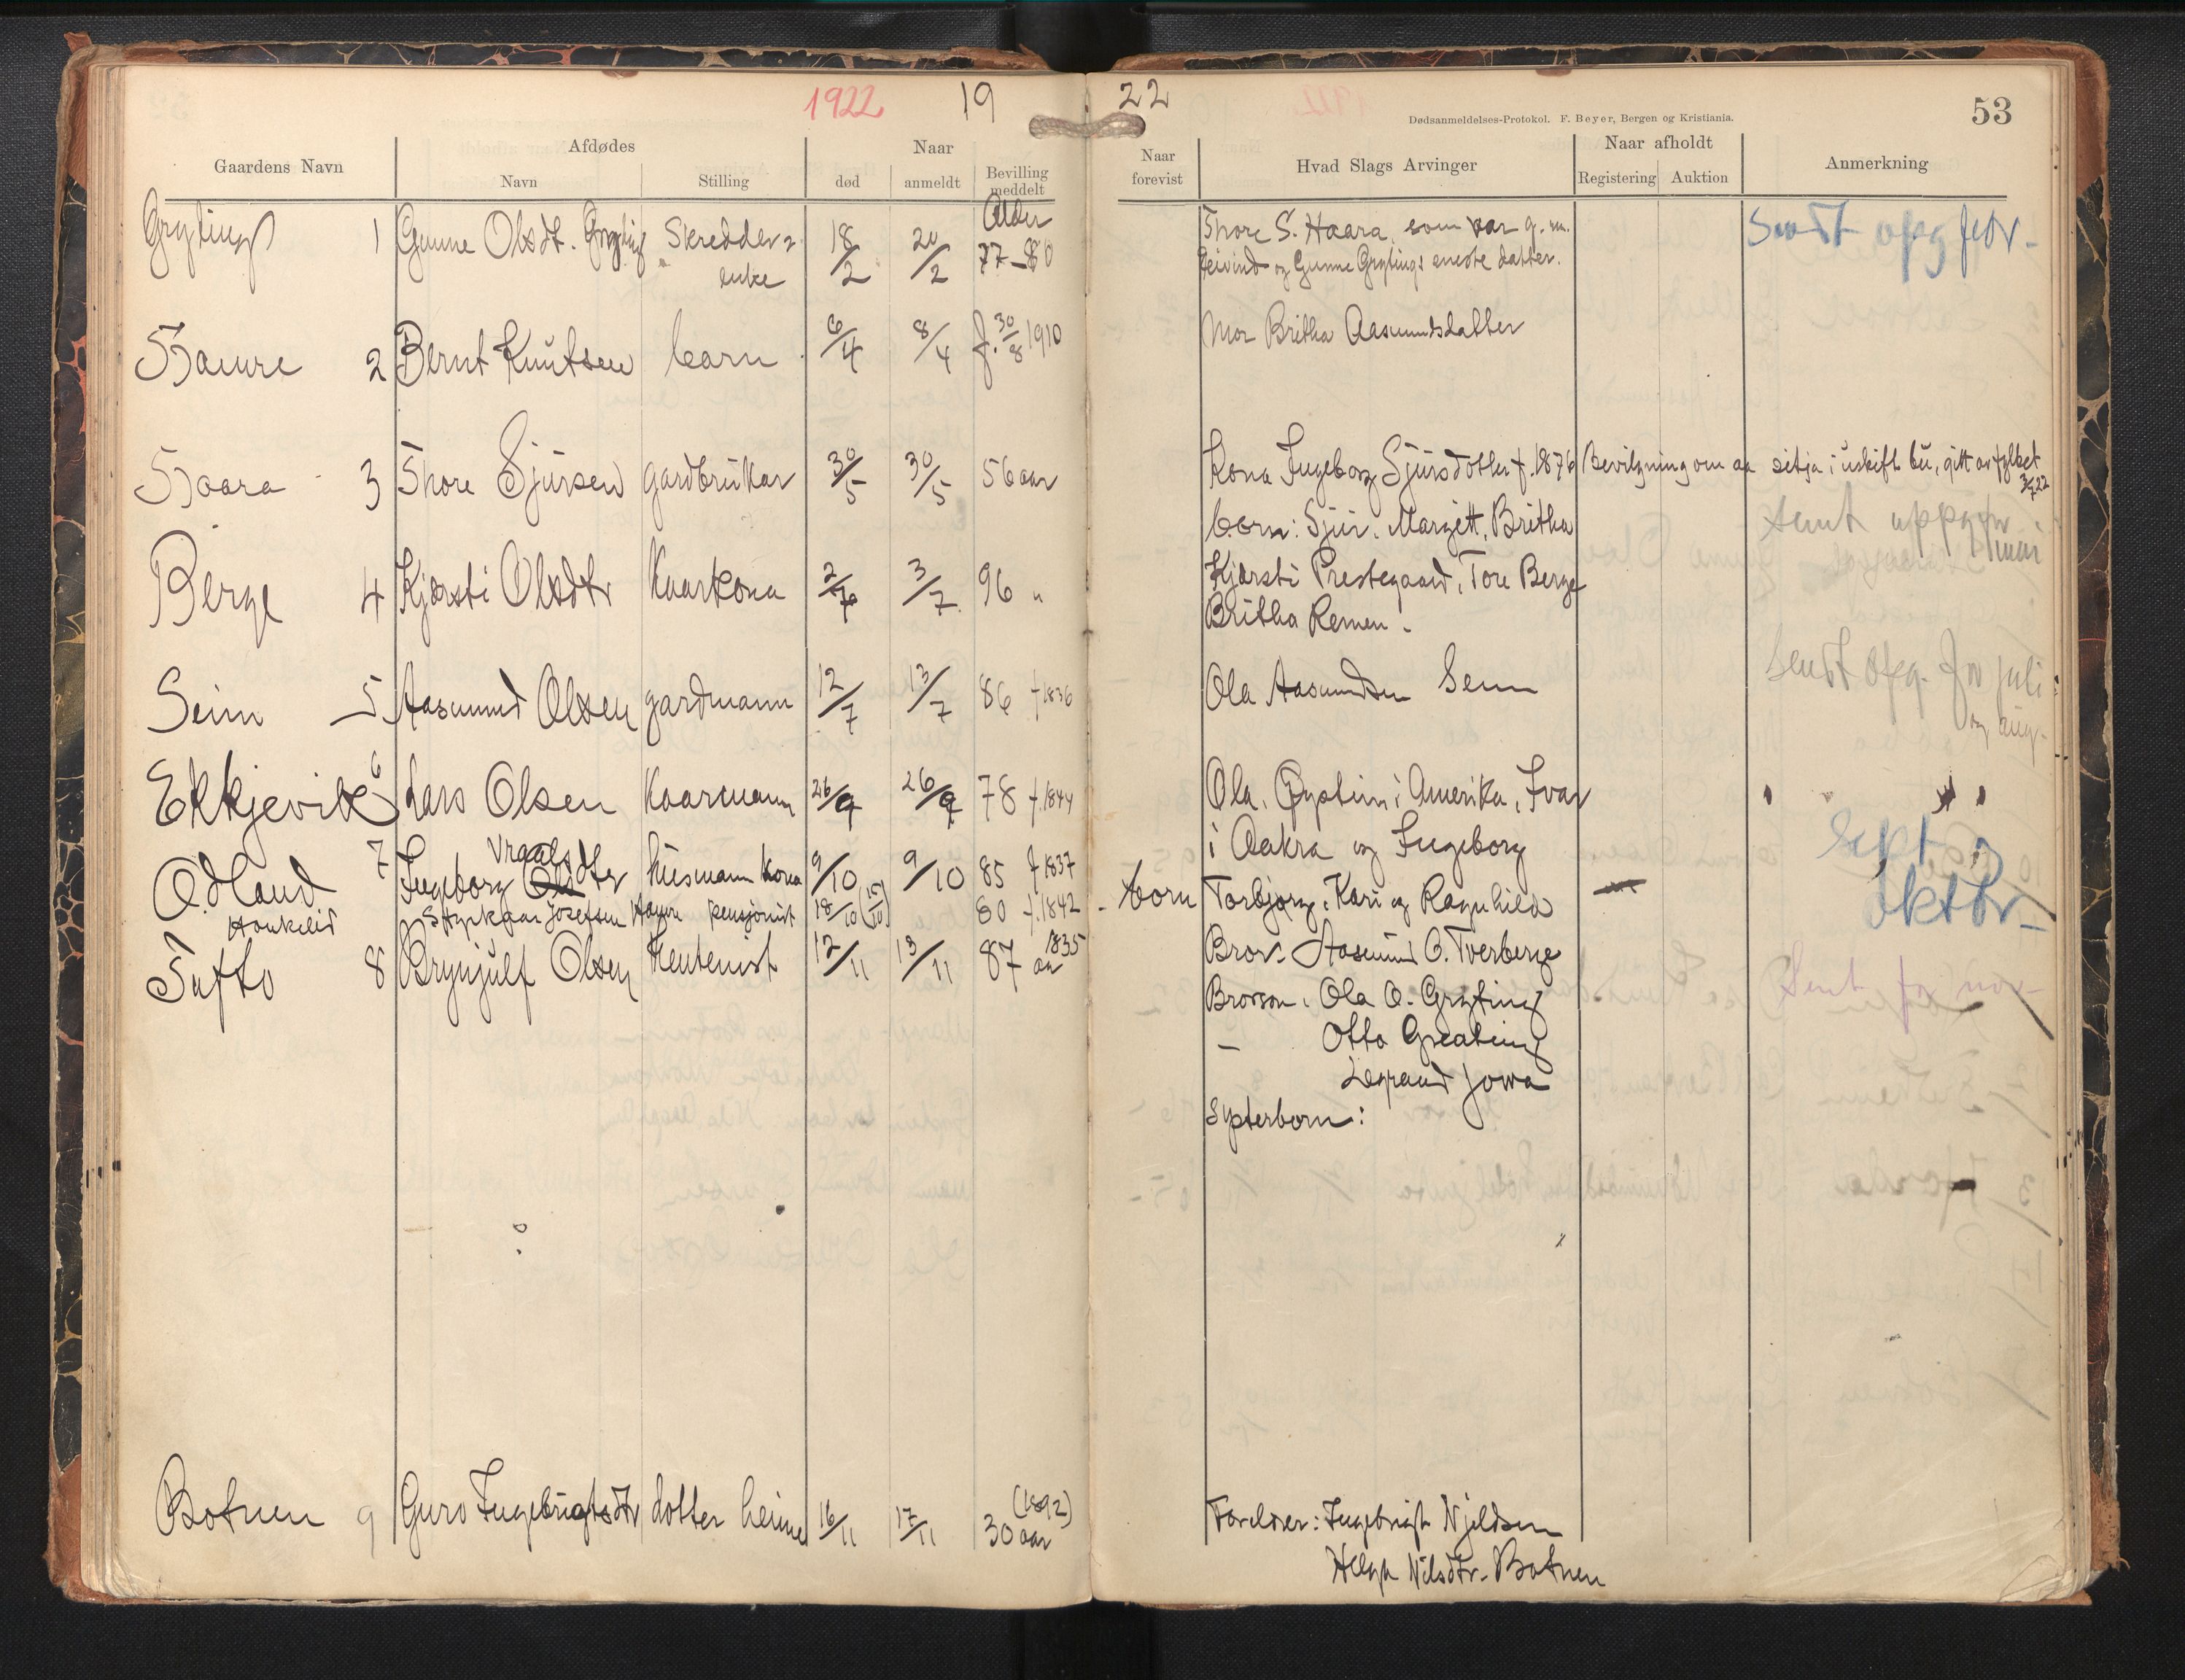 1922 19 22
Dødsanmeldelses-Protokol. F. Beyer, Bergen og Kristiania. 53
Gaardens Navn Afdødes Naar Naar forevist Hvad Slags Arvinger Naar afholdt Anmerkning
Navn Stilling død anmeldt Bevilling meddelt Registering Auktion
Alder
Gryting 1 Gunne Olsdt. Gryting Skredder enke 18/2 20/2 77 - 80 Thore S. Haara, som var g. m. Sendt opg febr.
Eeivind og Gunne Grytings eneste datter.
Haure 2 Bernt Knutsen barn 6/4 8/4 f. 30/8 1910 Mor Britha Aasmundsdatter
Haara 3 Thore Sjursen gardbrukar 30/5 30/5 56 aar Kona Ingeborg Sjursdotter f. 1876 Bevilgning om aa sitja i uskift bu, gitt av fylket 3/7 22
born: Sjur, Margett, Britha Sent uppgjer i mai
Berge 4 Kjærsti Olsdtr Kaarkona 2/7 3/7 96 " Kjærsti Prestegaard, Tore Berge
Britha Remen.
Seim 5 Aasmund Olsen gardmann 12/7 13/7 86 f 1836 Ola Aasmundsen Seim Sendt opg. for juli
og aug.
Ekkjevik 6 Lars Olsen Kaarmann 26/9 26/9 78 f. 1844 Ola, Øystein i Amerika, Ivar
i Aakra og Ingeborg Sept. og
Odland 7 Ingeborg Vraalsdter husmann kona 9/10 9/10 85 f 1837 born Torbjørg, Kari og Ragnhild oktbr.
Honkelid Styrkaar Josefsen Haure pensjonist 18/10 (19/10) 80 f. 1842
Tufto 8 Brynjulf Olsen 12/11 13/11 87 aar 1835 Bror. Aasmund O. Tverberge Sent for nov.
Brorson. Ola O. Gryting
— Otto Greating
Legrand Jowa
Systerborn:
Botnen 9 Guro Ingebrigtsdtr dotter heime 16/11 17/11 30 aar (1892) Foreldrer: Ingebrigt Njeldsen
Helga Nilsdtr. Botnen